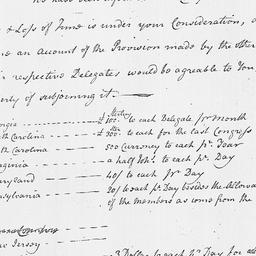 & Loss of Time is under your Consideration, a
an Account of the Provision made by the other
respective Delegates would be agreeable to You
erty of subjoining it.
orgia £100 Sterling to each Delegate pr Month
th Carolina £300 to each for the last Congress
th Carolina 500 Currency to each pr Year
irginia a half Joh.s to each pr Day
aryland 40/ to each pr Day
nsylvania 20/ to each pr Day besides the Allowa
of the Members as come from the
w Jersey
3 Dollars to each pr Day for